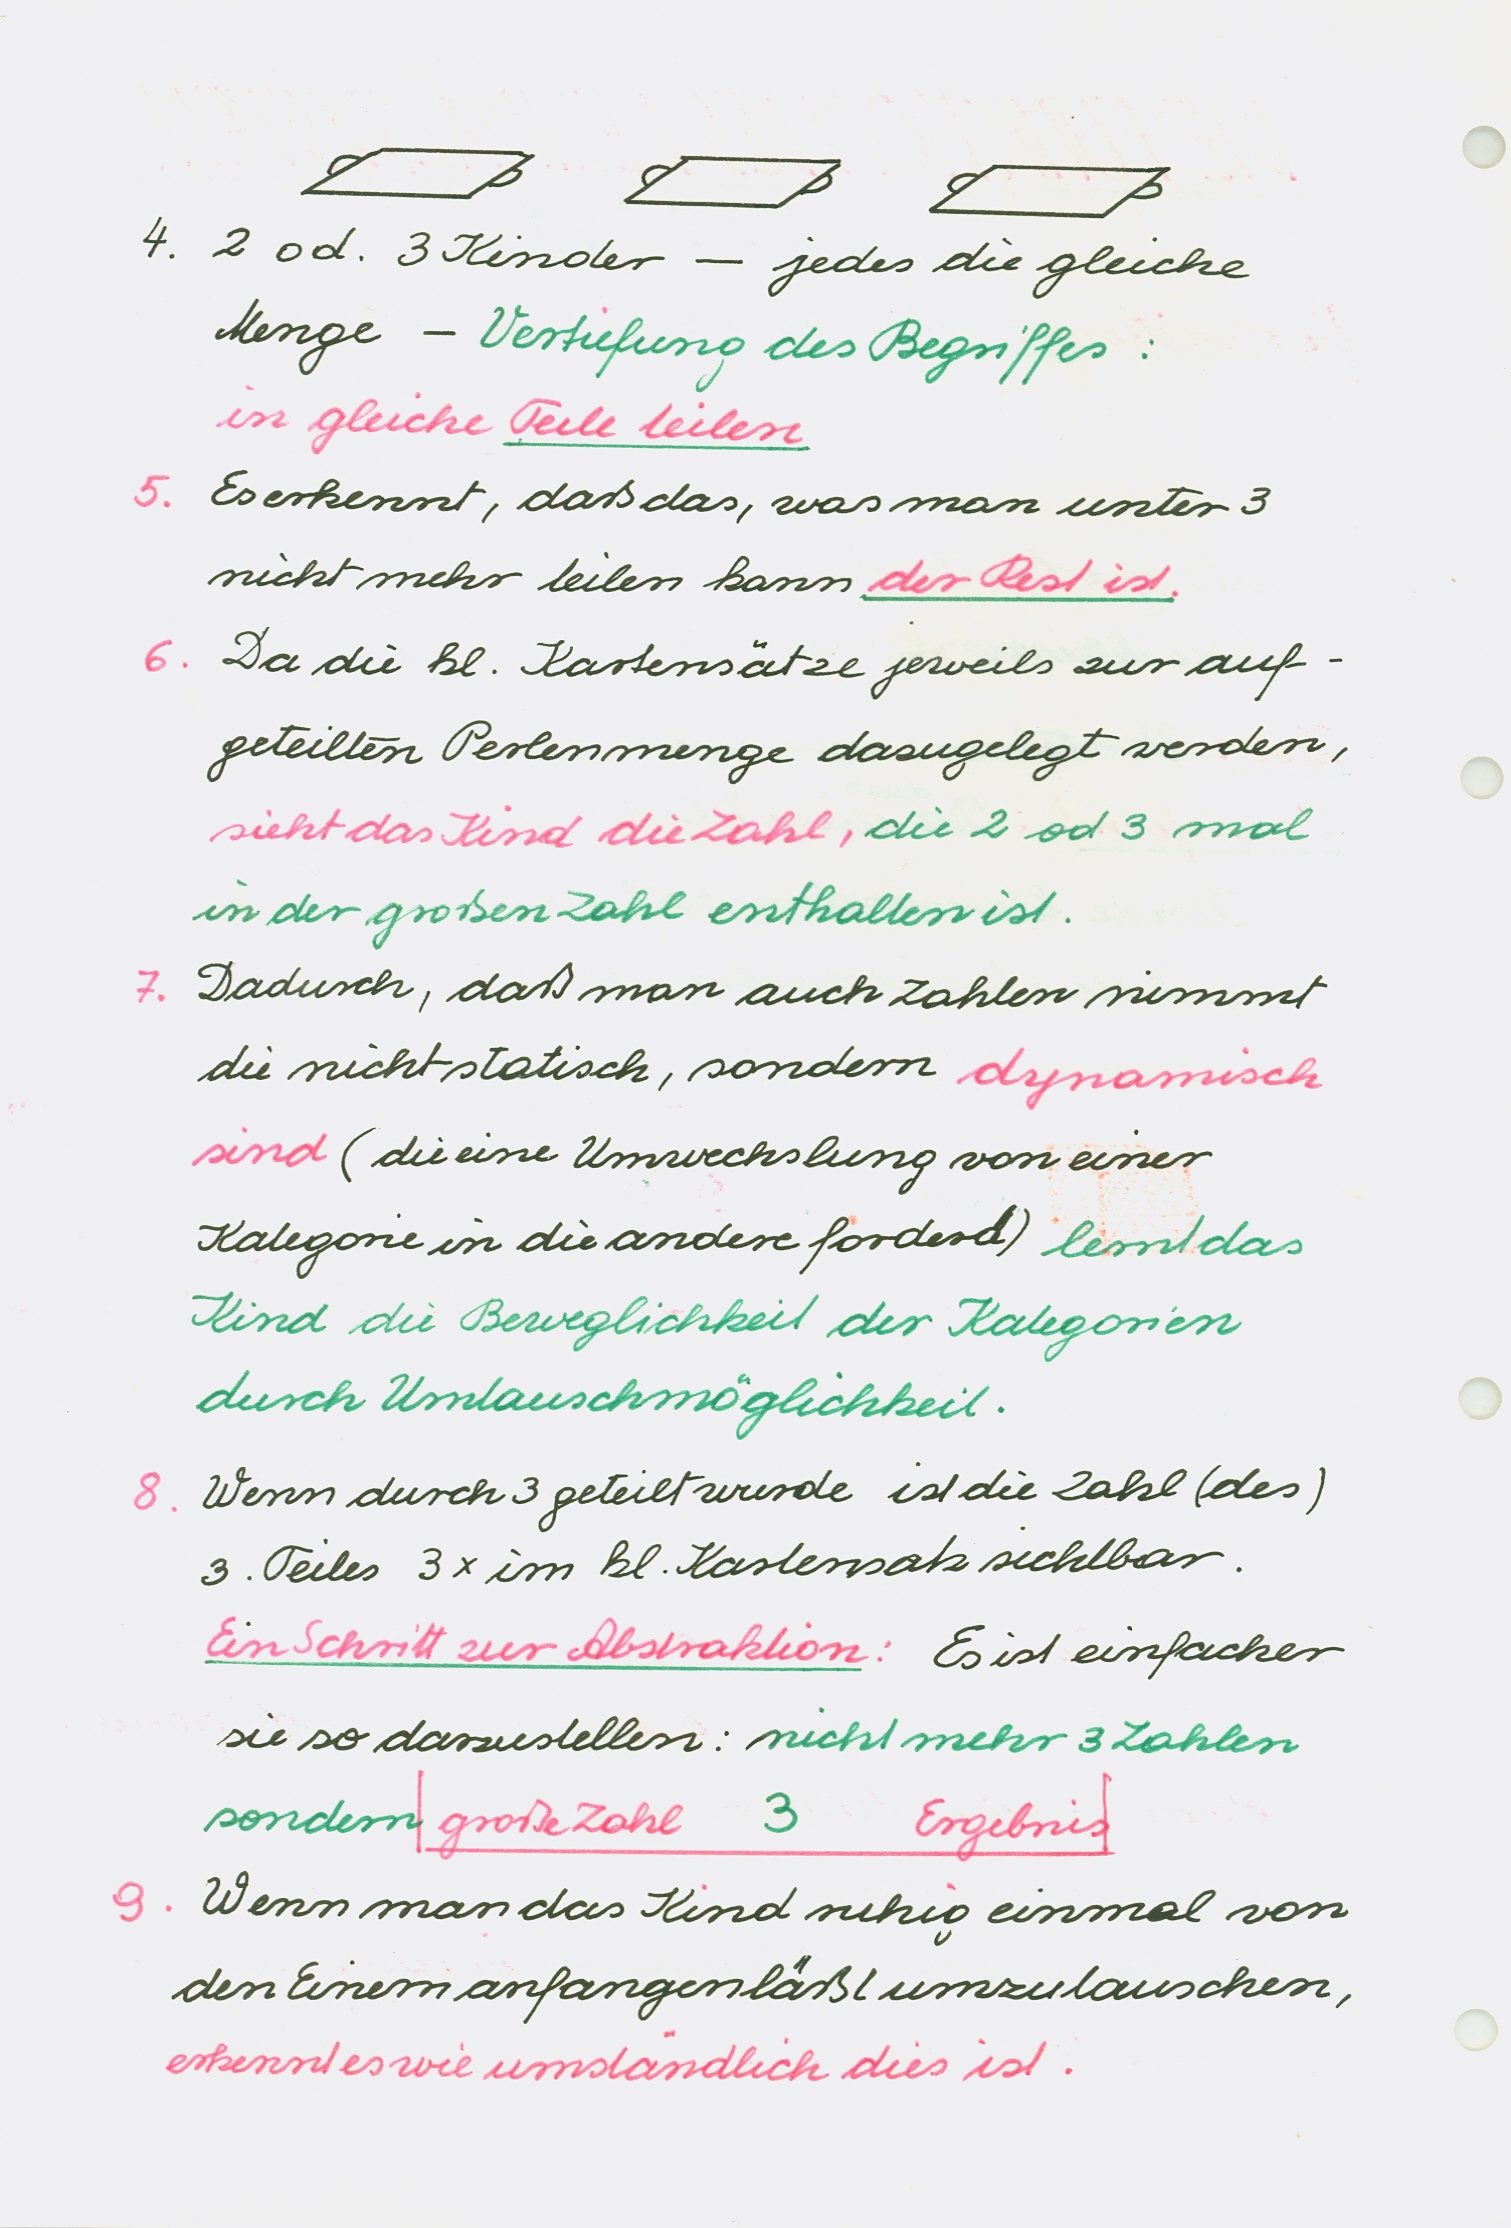 4. 2 od. 3 Kinder — jedes die gleiche
Menge — Vertiefung des Begriffes :
in gleiche Teile teilen
5. Es erkennt, daß das, was man unter 3
nicht mehr teilen kann der Rest ist.
6. Da die kl. Kartensätze jeweils zur auf-
geteilten Perlenmenge dazugelegt werden,
sieht das Kind die Zahl, die 2 od 3 mal
in der großen Zahl enthalten ist.
7. Dadurch, daß man auch Zahlen nimmt
die nicht statisch, sondern dynamisch
sind (die eine Umwechslung von einer
Kategorie in die andere fordern) lernt das
Kind die Beweglichkeit der Kategorien
durch Umtauschmöglichkeit.
8. Wenn durch 3 geteilt wurde ist die Zahl (des)
3. Teiles 3x im kl. Kartensatz sichtbar.
Ein Schritt zur Abstraktion: Es ist einfacher
sie so darzustellen: nicht mehr 3 Zahlen
sondern große Zahl 3 Ergebnis
9. Wenn man das Kind ruhig einmal von
den Einern anfangen läßt umzutauschen,
erkennt es wie umständlich dies ist.